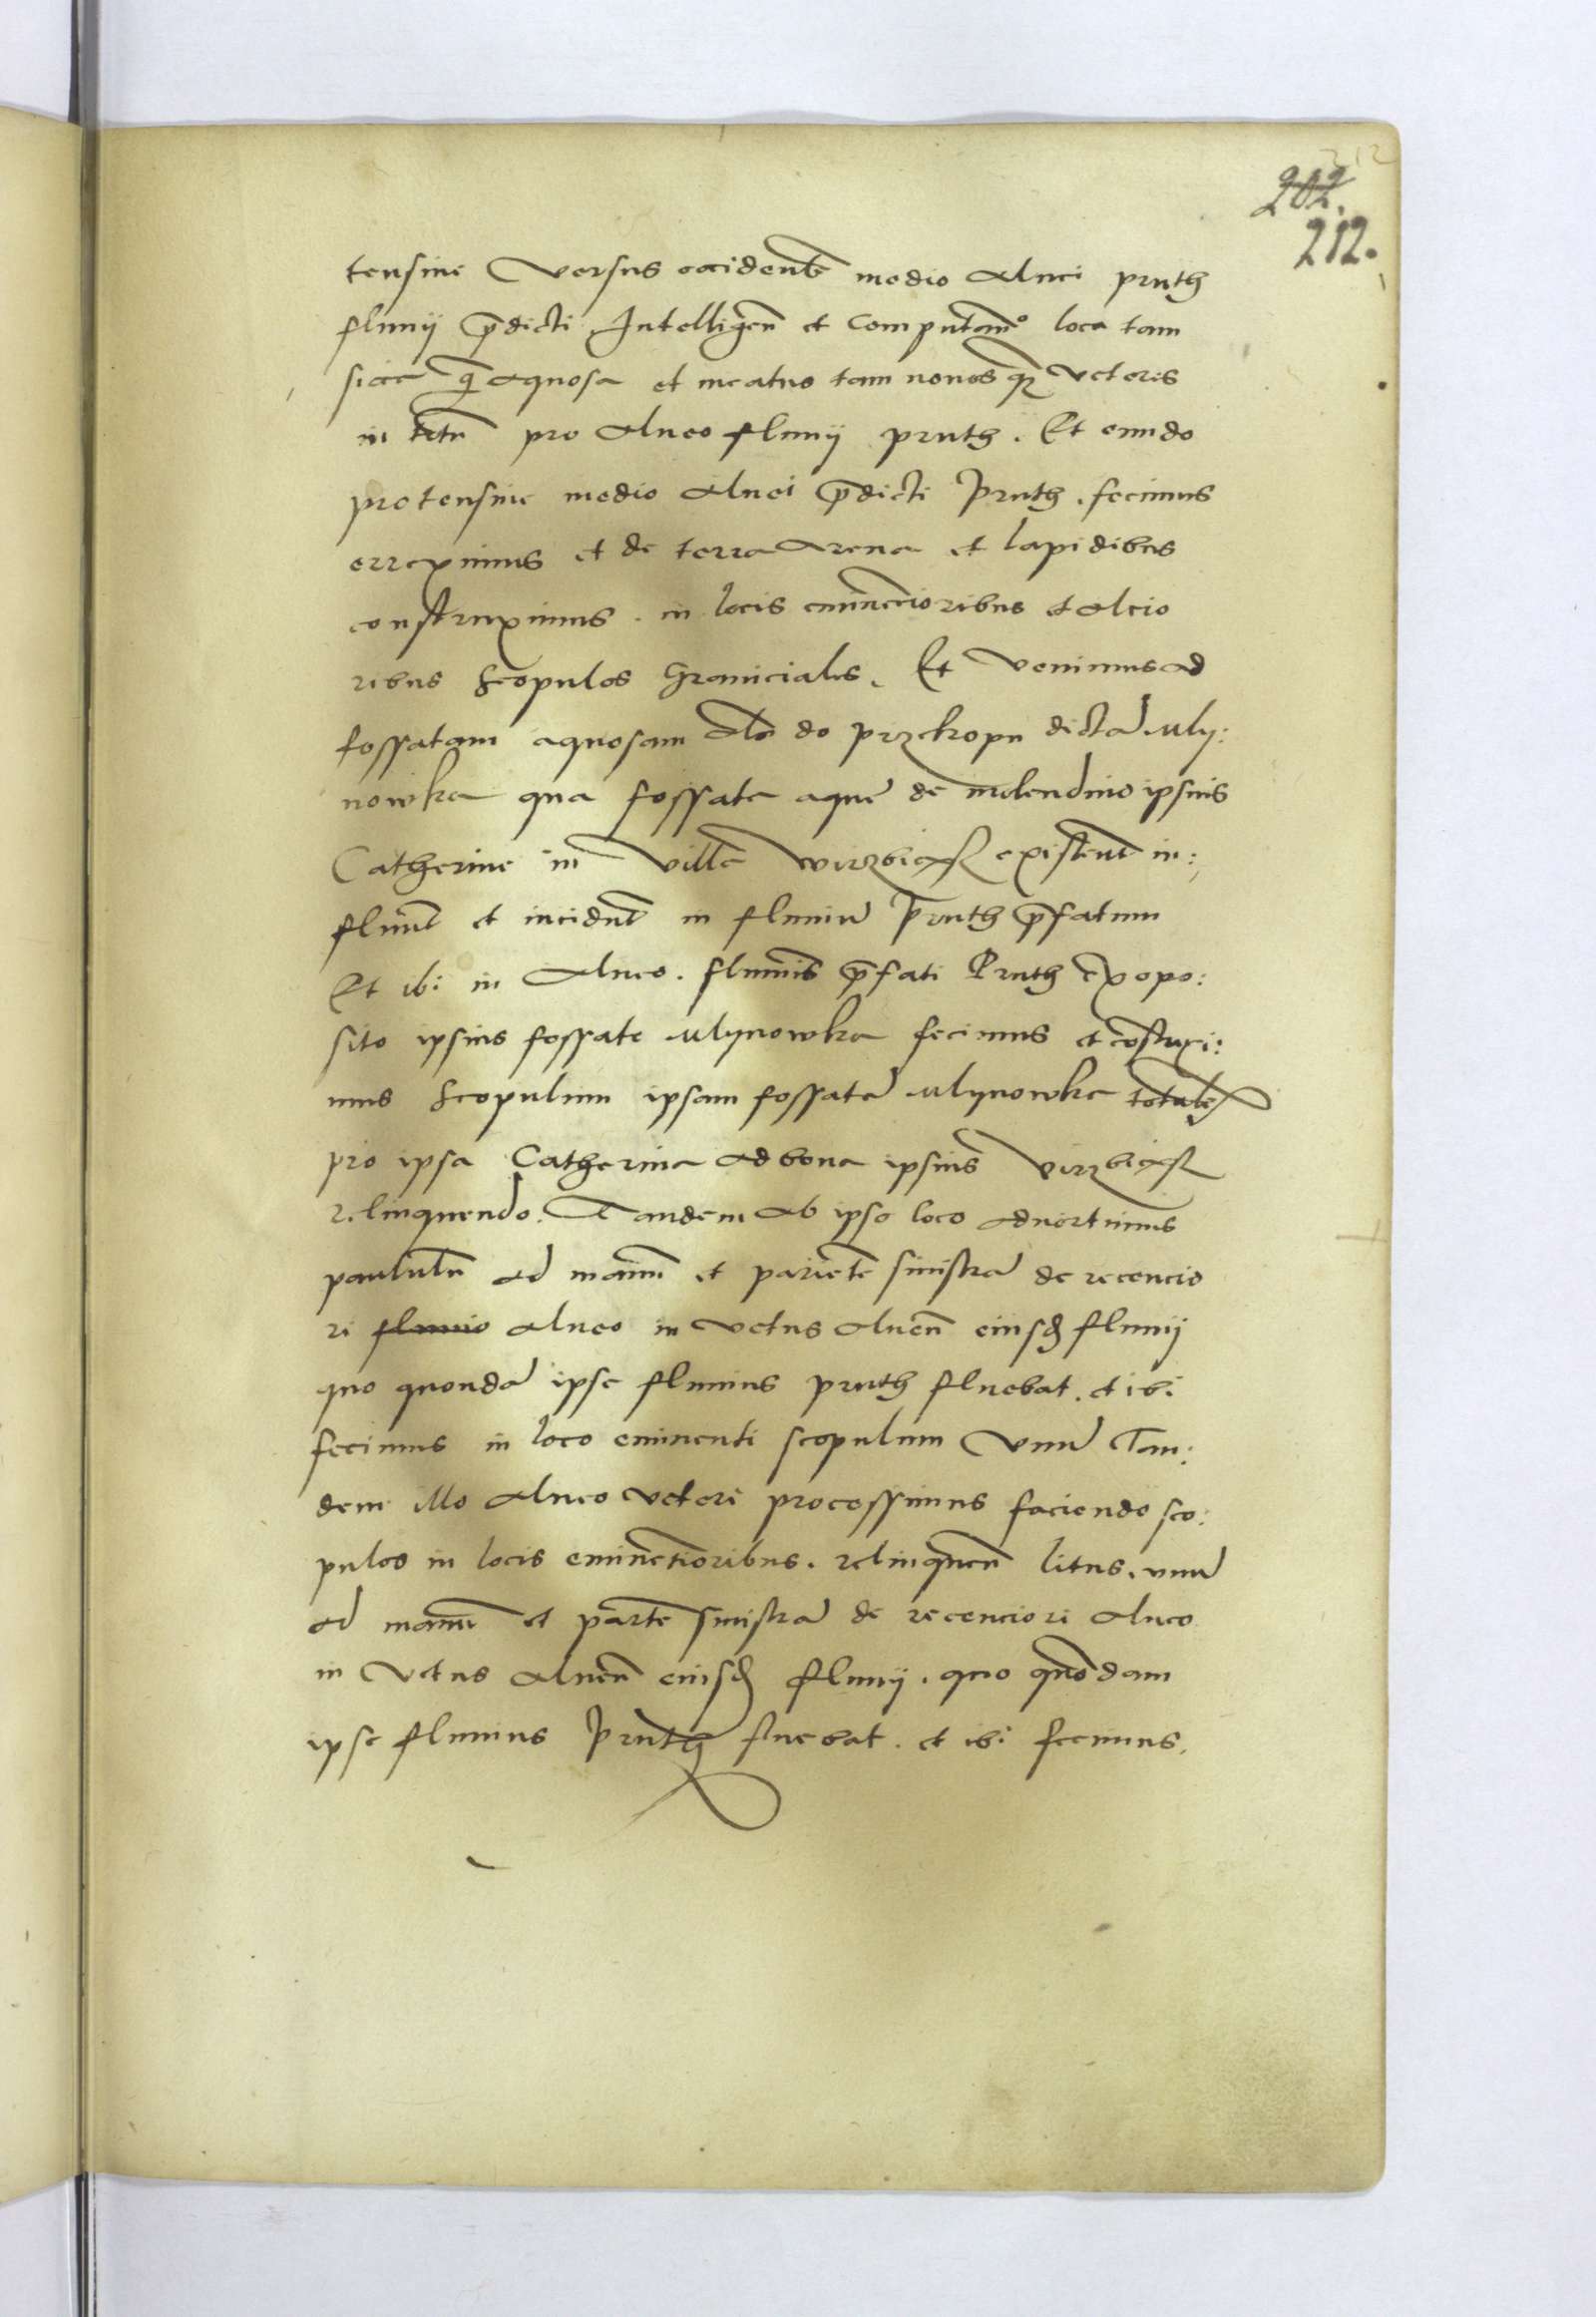 202.
212.
tensiue versus occidente medio aluei pruth
fluuij predicti Intelligen et computam9 loca tam
sicca q aquosa et meatus tam nouos q veteris
in totu pro alueo fluuij pruth. Et eundo
protensiue medio aluei predicti Pruth. fecimus
erreximus et de terra arena et lapidibus
construximus. in locis eminencioribus et alcio
ribus scopulos Graniciales. Et venimus ad
fossatam aquosam al do przekopu dicta Mly:
nowka qua fossata aque de molendino ipsius
Catherine in villa wirzbiasz existent in:
fluunt et incidunt in fluuiu Pruth prefatum
Et ibi in alueo. fluminis prefati Pruth ex opo:
sito ipsius fossate Mlynowka fecimus et costruxi:
mus scopulum ipsam fossata Mlynowka totale
pro ipsa Catherina ad bona ipsius virzbiasz
relinquendo. Tandem ab ipso loco aduertimus
paululu ad manum et pariete sinistra de recencio
ri fluuio alueo in vetus alueu eiusd fluuij
quo quonda ipse fluuius pruth fluebat. et ibi
fecimus in loco eminenti scopulum vnu Tan:
dem illo alueo veteri processimus faciendo sco:
pulos in locis eminetioribus. relinquen litus. vnu
ad manum et parte sinistra de recenciori alueo
in vetus alueu eiusd fluuij. quo quodam
ipse fluuius Pruth fluebat. et ibi fecimus.